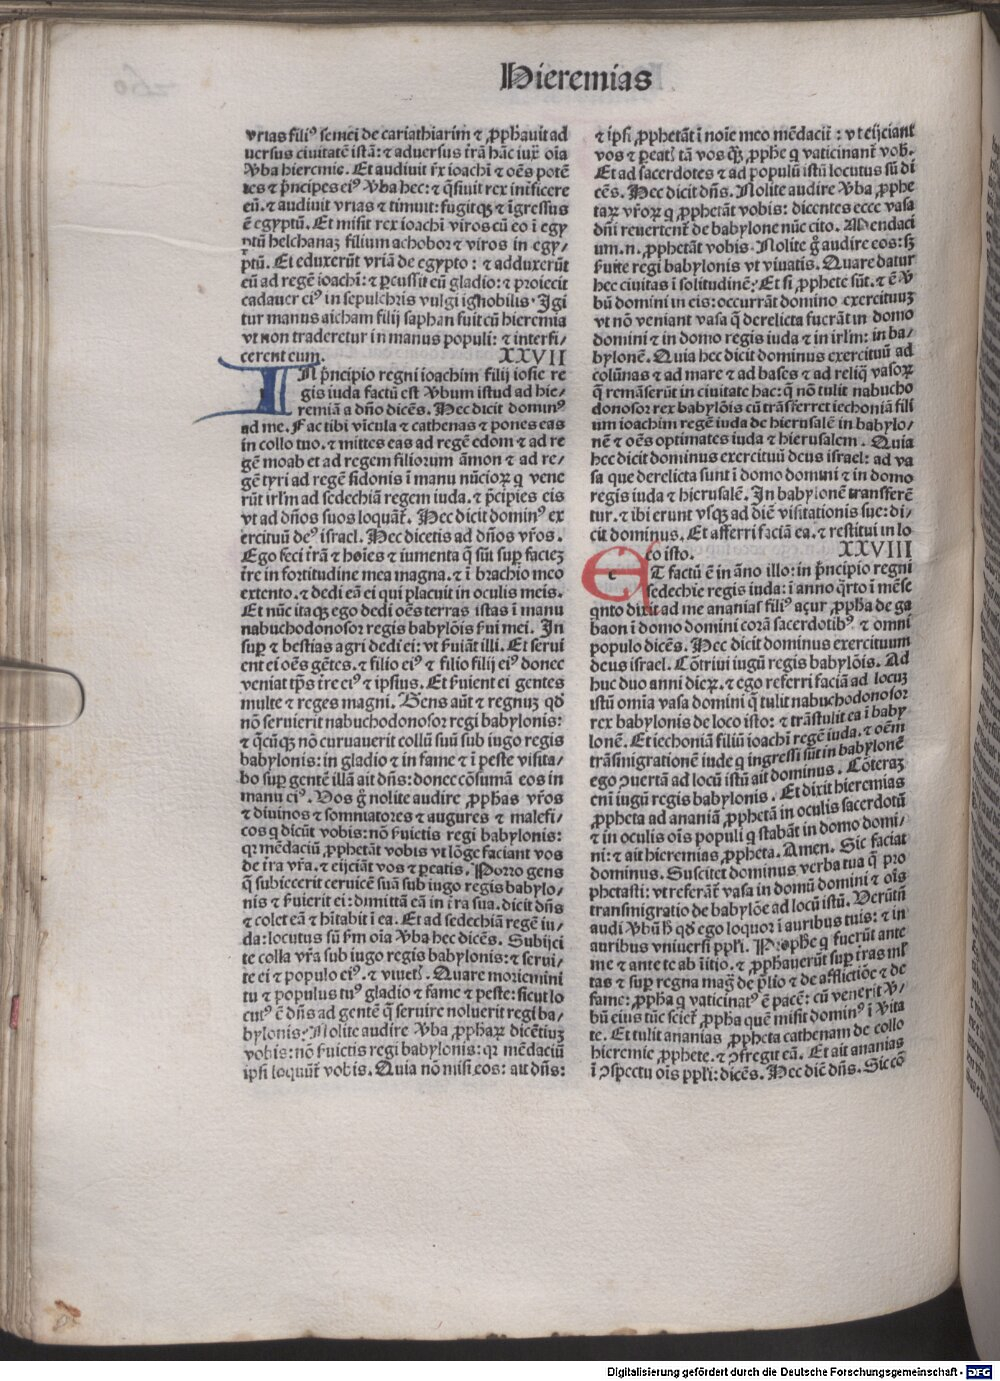 Hieremias
vrias fili⁹ semei de cariathiarim ⁊ ꝓph̄auit ad
uersus ciuitatē istā: ⁊ aduersus t̄rā hāc iux̄ oīa
v̄ba hieremie. Et audiuit r̄x ioachī ⁊ oēs potē
tes ⁊ p̄ncipes ei⁹ v̄ba hec: ⁊ q̄siuit rex int̄ficere
eū. ⁊ audiuit vrias ⁊ timuit: fugitqꝫ ⁊ īgressus
ē egyptū. Et misit rex ioachī viros cū eo ī egy
ptū helchanaꝫ filium achobor ⁊ viros in egy/
ptū. Et eduxerūt vriā de egypto : ⁊ adduxerūt
eū ad regē ioachī: ⁊ ꝑcussit eū gladio: ⁊ proiecit
cadauer ei⁹ in sepulchris vulgi ignobilis. Igi
tur manus aicham filij saphan fuit cū hieremia
vt non traderetur in manus populi: ⁊ interfi/
cerent eum. XXVII
IN p̄ncipio regni ioachim filij iosie re
gis iuda factū est v̄bum istud ad hie/
remiā a dn̄o dicēs. Hec dicit domin⁹
ad me. Fac tibi vīcula ⁊ cathenas ⁊ pones eas
in collo tuo. ⁊ mittes eas ad regē edom ⁊ ad re
gē moab et ad regem filiorum āmon ⁊ ad re/
gē tyri ad regē sidonis ī manu nūcioꝝ q vene
rūt irl̄m ad sedechiā regem iuda. ⁊ p̄cipies eis
vt ad dn̄os suos loquāt̄. Hec dicit domin⁹ ex
ercituū de⁹ israel. Hec dicetis ad dn̄os vr̄os.
Ego feci t̄rā ⁊ hoīes ⁊ iumenta q̄ sūt suꝑ facieꝫ
t̄re in fortitudine mea magna. ⁊ ī brachio meo
extento. ⁊ dedi eā ei qui placuit in oculis meis.
Et nūc itaqꝫ ego dedi oēs terras istas ī manu
nabuchodonosor regis babylōis s̄ui mei. In
suꝑ ⁊ bestias agri dedi ei: vt s̄uiāt illi. Et serui
ent ei oēs gētes. ⁊ filio ei⁹ ⁊ filio filij ei⁹ donec
veniat tp̄s t̄re ei⁹ ⁊ ipsius. Et s̄uient ei gentes
multe ⁊ reges magni. Gens aūt ⁊ regnuꝫ qd̄
nō seruierit nabuchodonosor regi babylonis:
⁊ q̄cūqꝫ nō curuauerit collū suū sub iugo regis
babylonis: in gladio ⁊ in fame ⁊ ī peste visita/
bo suꝑ gentē illā ait dn̄s: donec cōsumā eos in
manu ei⁹. Vos g̊ nolite audire ꝓph̄as vr̄os
⁊ diuinos ⁊ somniatores ⁊ augures ⁊ malefi/
cos q dicūt vobis: nō s̄uietis regi babylonis:
qꝛ mēdaciū ꝓphetāt vobis vt lōge faciant vos
de t̄ra vr̄a. ⁊ eijciāt vos ⁊ ꝑeatis. Porro gens
q̄ subiecerit ceruicē suā sub iugo regis babylo/
nis ⁊ s̄uierit ei: dimittā eā in t̄ra sua. dicit dn̄s
⁊ colet eā ⁊ hītabit ī ea. Et ad sedechiā regē iu/
da: locutus sū s̄m oīa v̄ba hec dicēs. Subijci
te colla vr̄a sub iugo regis babylonis: ⁊ serui/
te ei ⁊ populo ei⁹. ⁊ viuet̄. Quare moriemini
tu ⁊ populus tu⁹ gladio ⁊ fame ⁊ peste: sicut lo
cut⁹ ē dn̄s ad gentē q̄ seruire noluerit regi ba/
bylonis? Nolite audire v̄ba ꝓph̄aꝝ dicētiuꝫ
vobis: nō s̄uietis regi babylonis: qꝛ mēdaciū
ipsi loquūt̄ vobis. Quia nō misi eos: ait dn̄s:
⁊ ipsi ꝓphetāt ī noīe meo mēdacit̄ : vt eijciant
vos ⁊ ꝑeat̄ tā vos qꝫ ꝓph̄e q vaticinant̄ vob̄.
Et ad sacerdotes ⁊ ad populū istū locutus sū di
cēs. Hec dicit dn̄s. Nolite audire v̄ba ꝓphe
taꝝ vr̄oꝝ q ꝓphetāt vobis: dicentes ecce vasa
dn̄i reuertent̄ de babylone nūc cito. Mendaci
um .n. ꝓphetāt vobis. Nolite g̊ audire eos: sꝫ
s̄uite regi babylonis vt viuatis. Quare datur
hec ciuitas ī solitudinē? Et si ꝓphete sūt. ⁊ ē v̄
bū domini in eis: occurrāt domino exercituuꝫ
vt nō veniant vasa q̄ derelicta fuerāt in domo
domini ⁊ in domo regis iuda ⁊ in irl̄m: in ba/
bylonē. Quia hec dicit dominus exercituū ad
colūnas ⁊ ad mare ⁊ ad bases ⁊ ad reliq̄ vasoꝝ
q̄ remāserūt in ciuitate hac: q̄ nō tulit nabucho
donosor rex babylōis cū trāsferret iechoniā fili
um ioachim regē iuda de hierusalē in babylo/
nē ⁊ oēs optimates iuda ⁊ hierusalem. Quia
hec dicit dominus exercituū deus israel: ad va
sa que derelicta sunt ī domo domini ⁊ in domo
regis iuda ⁊ hierusalē. In babylonē transferē
tur. ⁊ ibi erunt vsqꝫ ad diē visitationis sue: di/
cit dominus. Et afferri faciā ea. ⁊ restitui in lo
co isto. XXVIII
ET factū ē in āno illo: in p̄ncipio regni
sedechie regis iuda: ī anno q̄rto ī mēse
qnto dixit ad me ananias fili⁹ açur ꝓph̄a de ga
baon ī domo domini corā sacerdotib⁹ ⁊ omni
populo dicēs. Hec dicit dominus exercituum
deus israel. Cōtriui iugū regis babylōis. Ad
huc duo anni dieꝝ. ⁊ ego referri faciā ad locuꝫ
istū omīa vasa domini q̄ tulit nabuchodonosor
rex babylonis de loco isto: ⁊ trāstulit ea ī baby
lonē. Et iechoniā filiū ioachī regē iuda. ⁊ oēm
trāsmigrationē iude q ingressi sūt in babylonē
ego ꝯuertā ad locū istū ait dominus. Cōteraꝫ
enī iugū regis babylonis. Et dixit hieremias
ꝓpheta ad ananiā ꝓphetā in oculis sacerdotū
⁊ in oculis oīs populi q stabāt in domo domi/
ni: ⁊ ait hieremias ꝓpheta. Amen. Sic faciat
dominus. Suscitet dominus verba tua q̄ pro
phetasti: vt referāt̄ vasa in domū domini ⁊ oīs
transmigratio de babylōe ad locū istū. Verūtn̄
audi v̄bū h̄ qd̄ ego loquor ī auribus tuis: ⁊ in
auribus vniuersi ppl̄i. Prophe q fuerūt ante
me ⁊ ante te ab īitio. ⁊ ꝓph̄auerūt suꝑ t̄ras ml̄
tas ⁊ suꝑ regna maḡ de p̄lio ⁊ de afflictiōe ⁊ de
fame: ꝓph̄a q vaticinat⁹ ē pacē: cū venerit v̄/
bū eius tūc sciet̄ ꝓph̄a quē misit domin⁹ ī v̄ita
te. Et tulit ananias ꝓpheta cathenam de collo
hieremie ꝓphete. ⁊ ꝯfregit eā. Et ait ananias
ī ꝯspectu oīs ppl̄i: dicēs. Hec dic̄ dn̄s. Sic cō
Digitalisierung gefördert durch die Deutsche Forschungsgemeinschaft - DFG